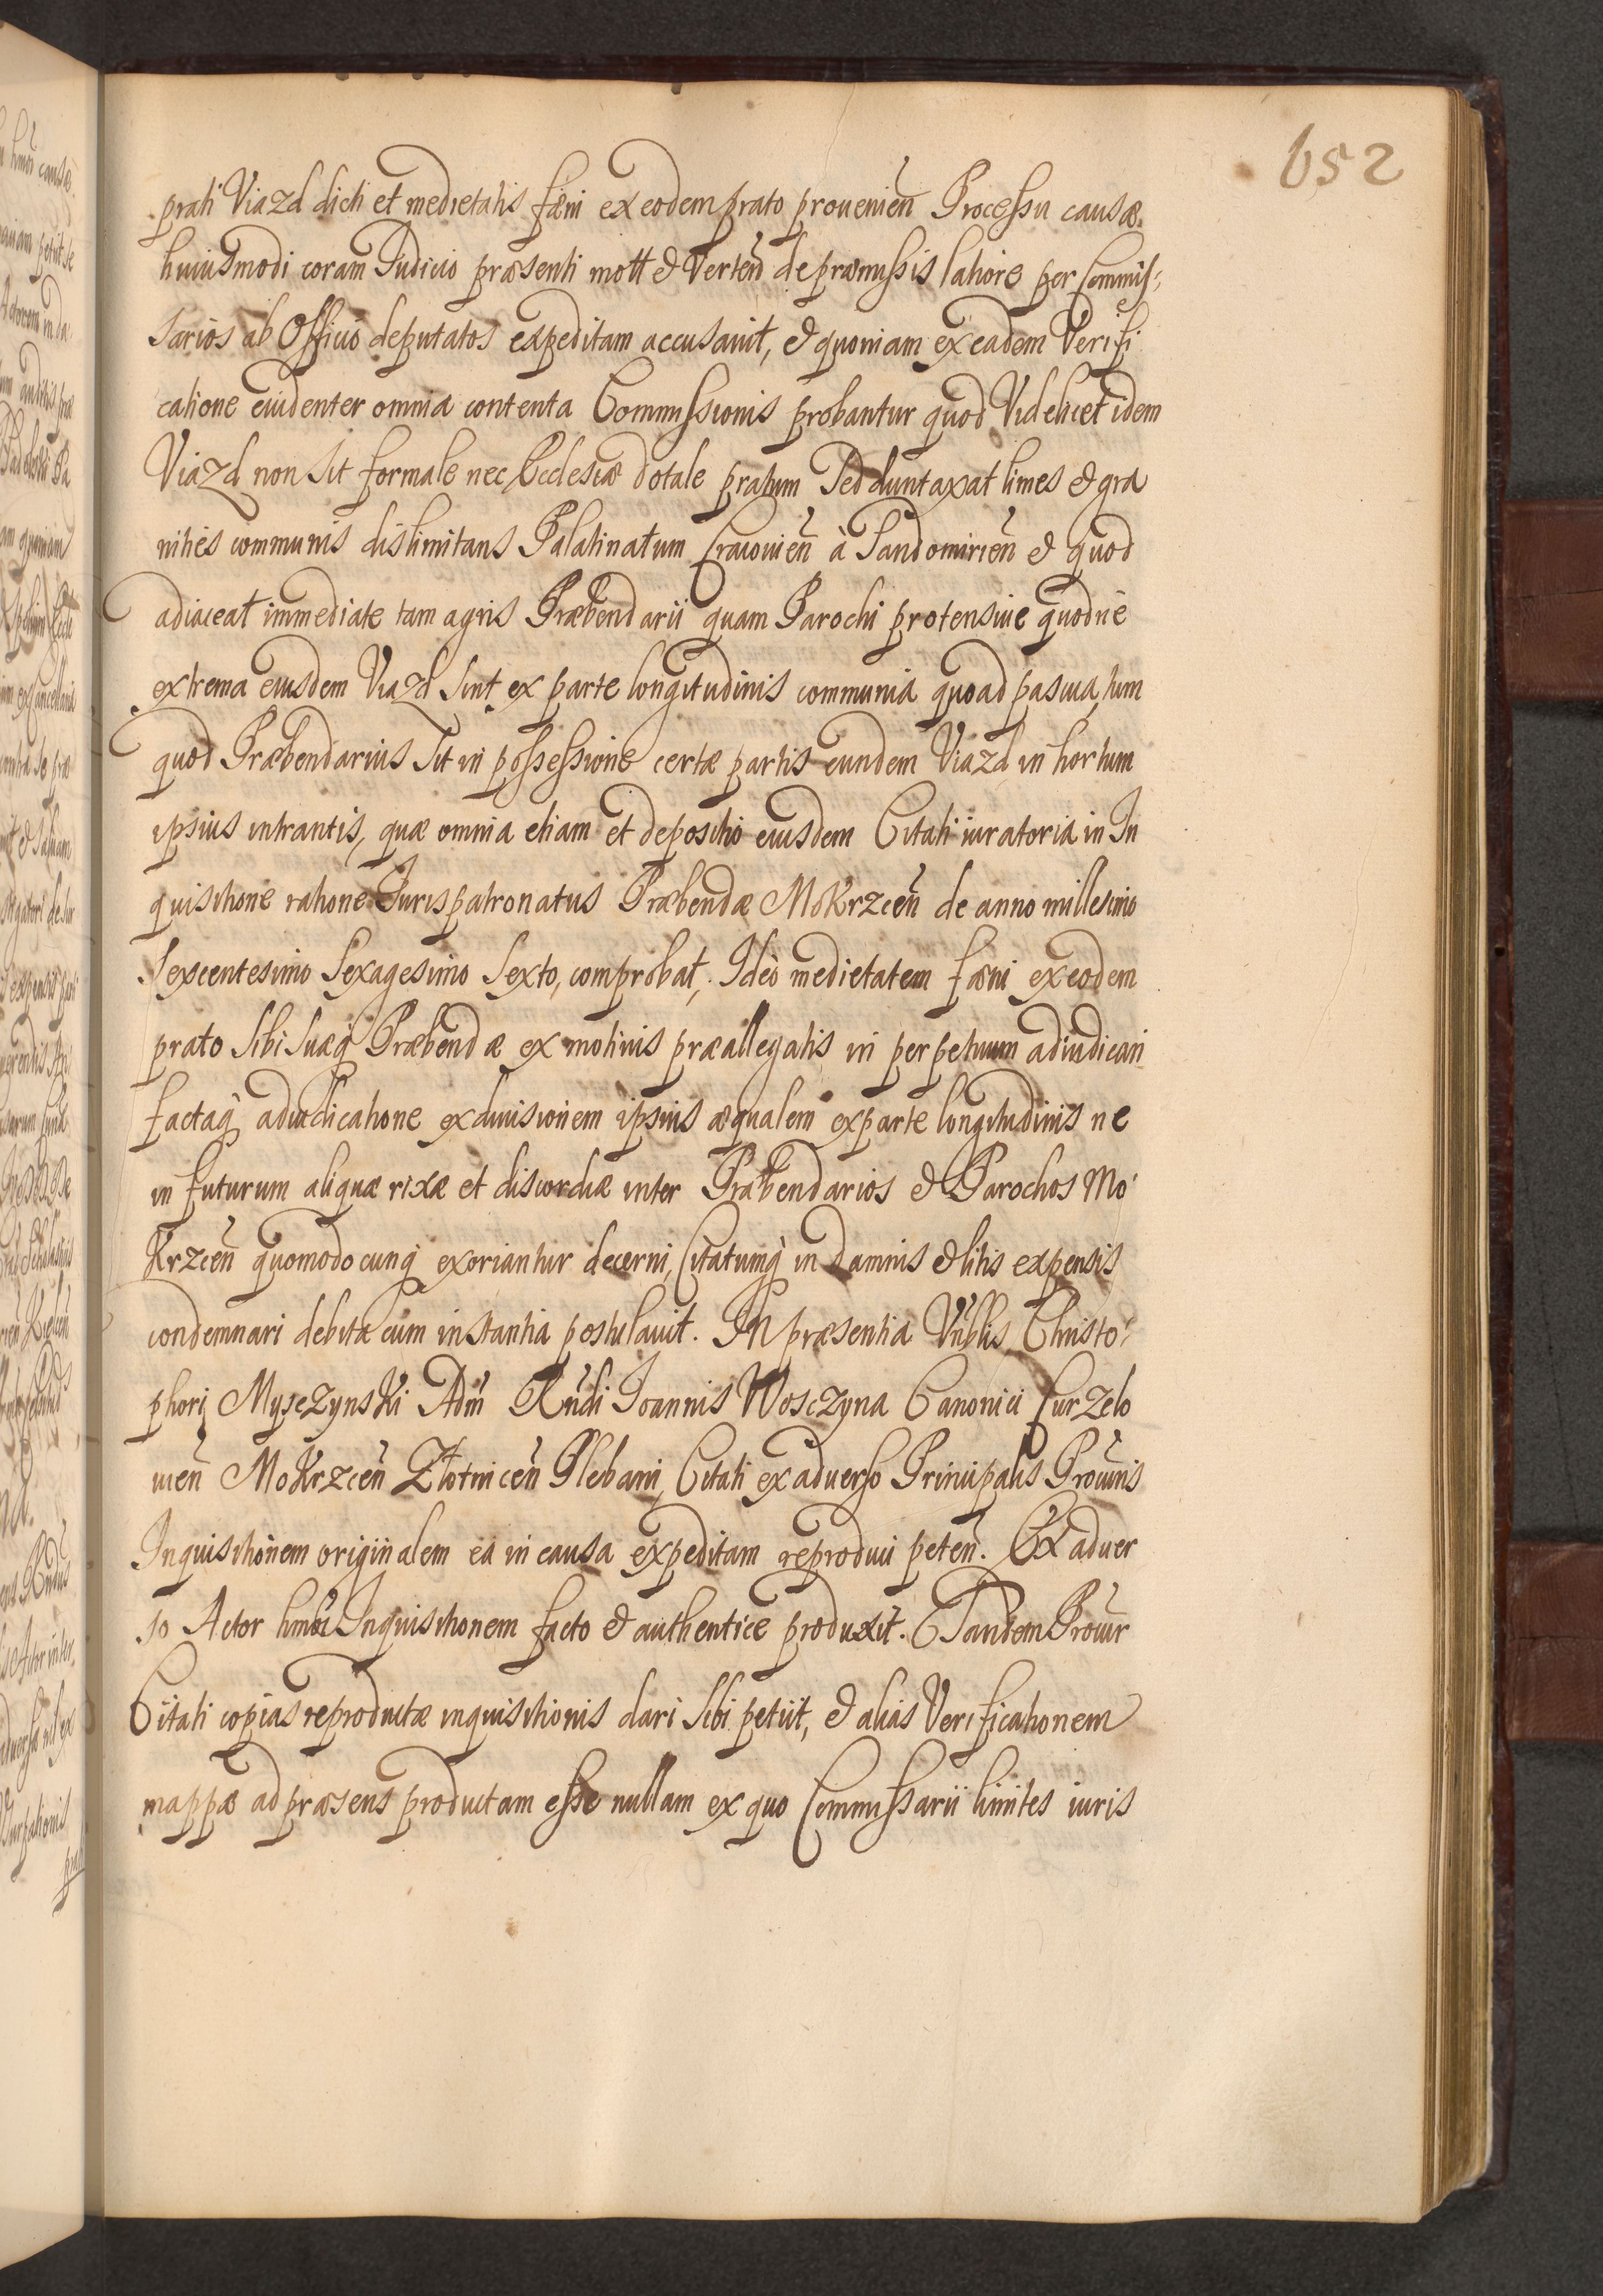 652
prati Viazd dicti et medietatis fæni ex eodem prato prouenień Processu causæ
huiusmodi coram Iudicio præsenti mott & Verteń de præmissis latiore per Commis:
sarios ab Officio deputatos expeditam accusauit, & quoniam ex eadem Verifi
catione euidenter omnia contenta Commissionis probantur quod Videlicet idem
Viazd non sit formale nec Ecclesiæ dotale pratum Sed duntaxat limes & gra
nities communis dislimitans Palatinatum Cracouień à Sandomirień & quod
adiaceat immediate tam agris Præbendarii quam Parochi protensiue quodue
extrema eiusdem Viazd sint ex parte longitudinis communia quoad pascua, tum
quod Præbendarius Sit in possessione certæ partis eundem Viazd in hortum
ipsius intrantis, quæ omnia etiam et depositio eiusdem Citati iuratoria in In
quisitione ratione Iurispatronatus Præbendæ Mokrzceń de anno millesimo
Sexcentesimo Sexagesimo Sexto, comprobat, Ideò medietatem fæni ex eodem
prato sibi suæq Præbendæ ex motiuis præallegatis in perpetuum adiudicari
factaq adiudicatione ex diuisionem ipsius æqualem ex parte longitudinis ne
in futurum aliquæ rixæ et discordiæ inter Præbendarios & Parochos Mo
Krzceń quomodocunq exoriantur decerni, Citatumq in damnis & litis expensis
condemnari debita cum instantia postulauit. In præsentia Christo:
phori Mysczynski Adm Rńdi Ioannis Wosczyna Canonici Curzelo
uień Mokrzceń Złotniceń Plebani, Citati ex aduerso Principalis
Inquisitionem originalem eà in causa expeditam reproduci peteń. Ex aduer
so Actor hmoi Inquisitionem facto & authentice produxit. Tandem
Citati copias reproductæ inquisitionis dari sibi petiit, & alias Verificationem
mappæ ad præsens productam esse nullam ex quo Commissarii limites iuris